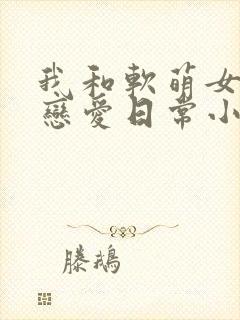 我和軟萌女
戀愛日常小
滕鵝